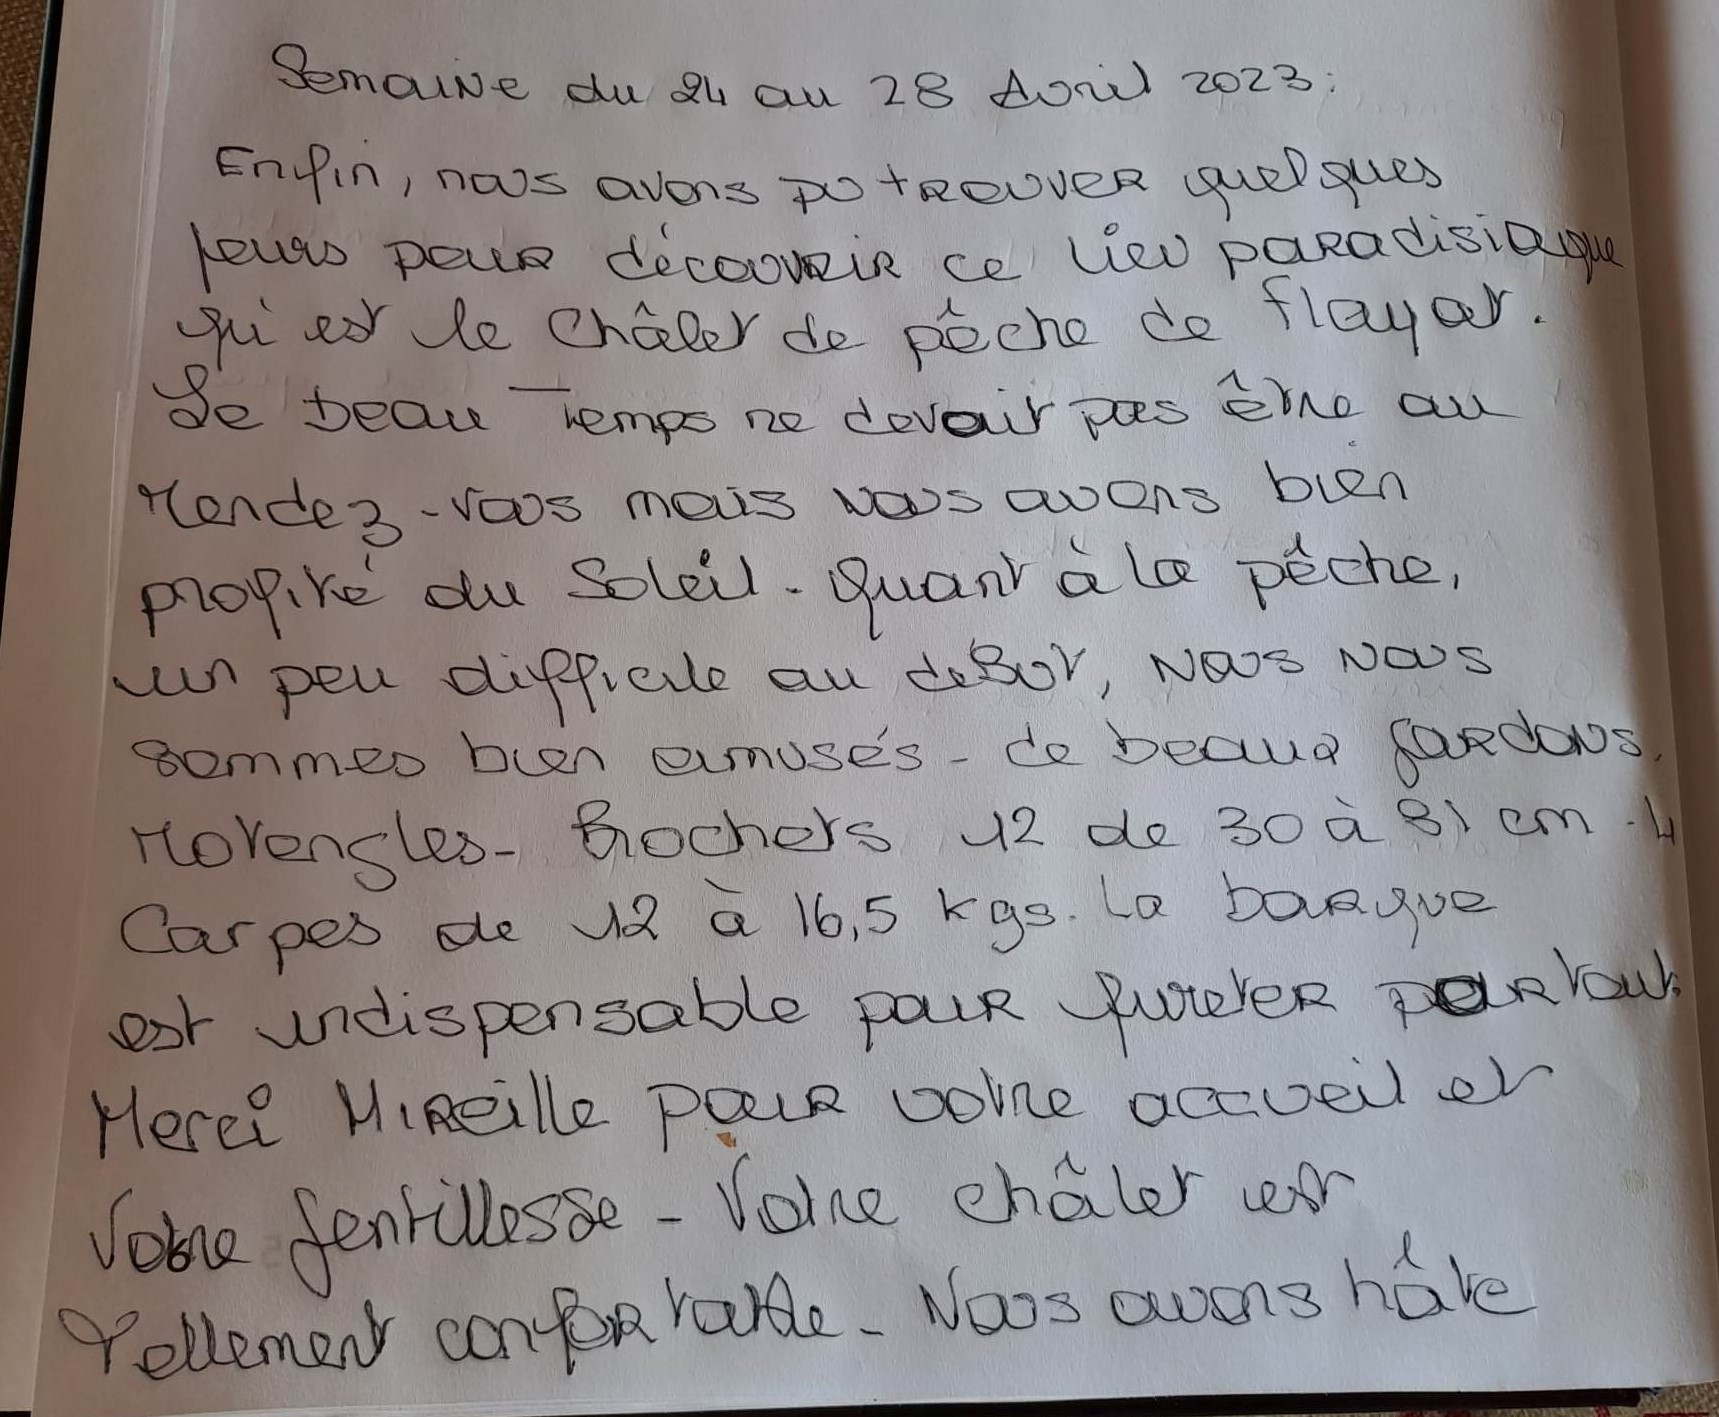 Semaine du 24 au 28 Avril 2023:
Enfin, nous avons pu trouver quelques
jours pour découvrir ce lieu paradisiaque
qui est le Châlet de pêche de flayat.
Le beau Temps ne devait pas être au
rendez-vous mais nous avons bien
profité du Soleil. Quant à la pêche,
un peu difficile au debut, nous nous
sommes bien amusés - de beaux gardons.
Rotengles - Brochets 12 de 30 à 81 cm. 4
Carpes de 12 à 16,5 kgs. La barque
est indispensable pour fureter partout.
Merci Mireille pour votre accueil et
Votre gentillesse - Votre châlet est
Tellement confortable - Nous avons hâte